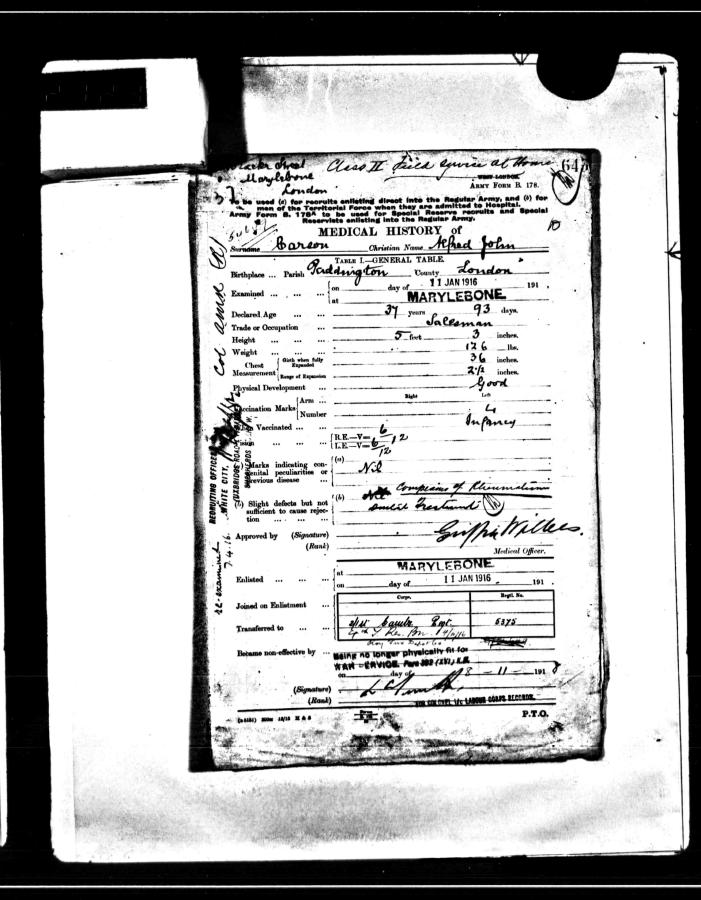 Street Class II Field service at Home 64
Marylebone WEST LONDON
London ARMY FORM B. 178.
37
To be used (a) for recruits enlisting direct into the Regular Army, and (b) for
men of the Territorial Force when they are admitted to Hospital.
Army Form B. 178A to be used for Special Reserve recruits and Special
Reservists enlisting into the Regular Army.
MEDICAL HISTORY of 10
Surname Carson Christian Name Alfred John
TABLE I.—GENERAL TABLE.
Birthplace ... Parish Paddington County London
Examined ... ... ... on day of 11 JAN 1916 191
at MARYLEBONE
Declared Age ... ... 37 years 93 days.
Trade or Occupation ... Salesman
Height ... ... ... 5 feet 3 inches.
Weight ... ... ... 126 lbs.
Chest Measurement Girth when fully Expanded 36 inches.
Range of Expansion 2 1/2 inches.
Physical Development ... Good
Right Left
Vaccination Marks Arm ...
Number 4
When Vaccinated ... ... Infancy
Vision ... ... ... R.E.—V= 6/12
L.E.—V= 6/12
Marks indicating congenital peculiarities or previous disease ... (a) Nil
(b) Slight defects but not sufficient to cause rejection ... ... (b) Complains of Rheumatism
Approved by (Signature)
(Rank)
Medical Officer.
Enlisted ... ... ... at MARYLEBONE
on day of 11 JAN 1916 191
Corps. Regtl. No.
Joined on Enlistment ...
Transferred to ... ... 5375
Became non-effective by ... Being no longer physically fit for
WAR SERVICE. Para 392 (XVI) K.R.
on day of 8 - 11 - 1918
(Signature)
(Rank) FOR COLONEL I/C LABOUR CORPS RECORDS.
P.T.O.
RECRUITING OFFICER
WHITE CITY,
UXBRIDGE ROAD
SHEPHERDS
re-examined
7.4.16